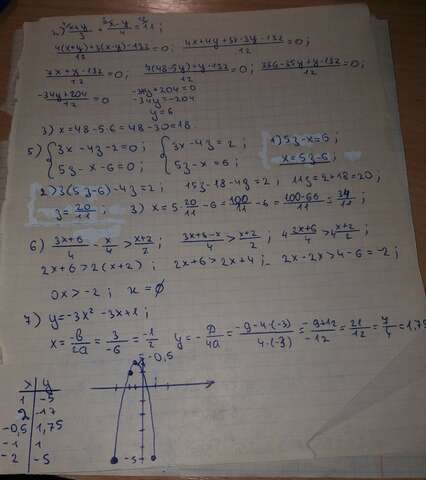 2) x+y/3 + x-y/4 = 11;
4(x+y)+3(x-y)-132/12=0; 4x+4y+3x-3y-132/12=0;
7x+y-132/12=0; 7(48-5y)+y-132/12=0; 336-35y+y-132/12=0;
-34y+204/12=0 -34y+204=0
-34y=-204
y=6
3) x=48-5·6=48-30=18.
5) {3x-4z-2=0; {3x-4z=2; 1) 5z-x=6;
{5z-x-6=0; {5z-x=6; x=5z-6;
2) 3(5z-6)-4z=2; 15z-18-4z=2; 11z=2+18=20;
z=20/11; 3) x=5·20/11-6=100/11-6=100-66/11=34/11;
6) 3x+6/4-x/4>x+2/2; 3x+6-x/4>x+2/2; 4 2x+6/4>4 x+2/2;
2x+6>2(x+2); 2x+6>2x+4; 2x-2x>4-6=-2;
0x>-2; x=∅
7) y=-3x²-3x+1;
x=-b/2a=3/-6=-1/2 y=-D/4a=-9-4·(-3)/4·(-3)=-9+12/-12=21/12=7/4=1,75
-0,5
x y
1 -5
2 -17
-0,5 1,75
-1 1
-2 -5